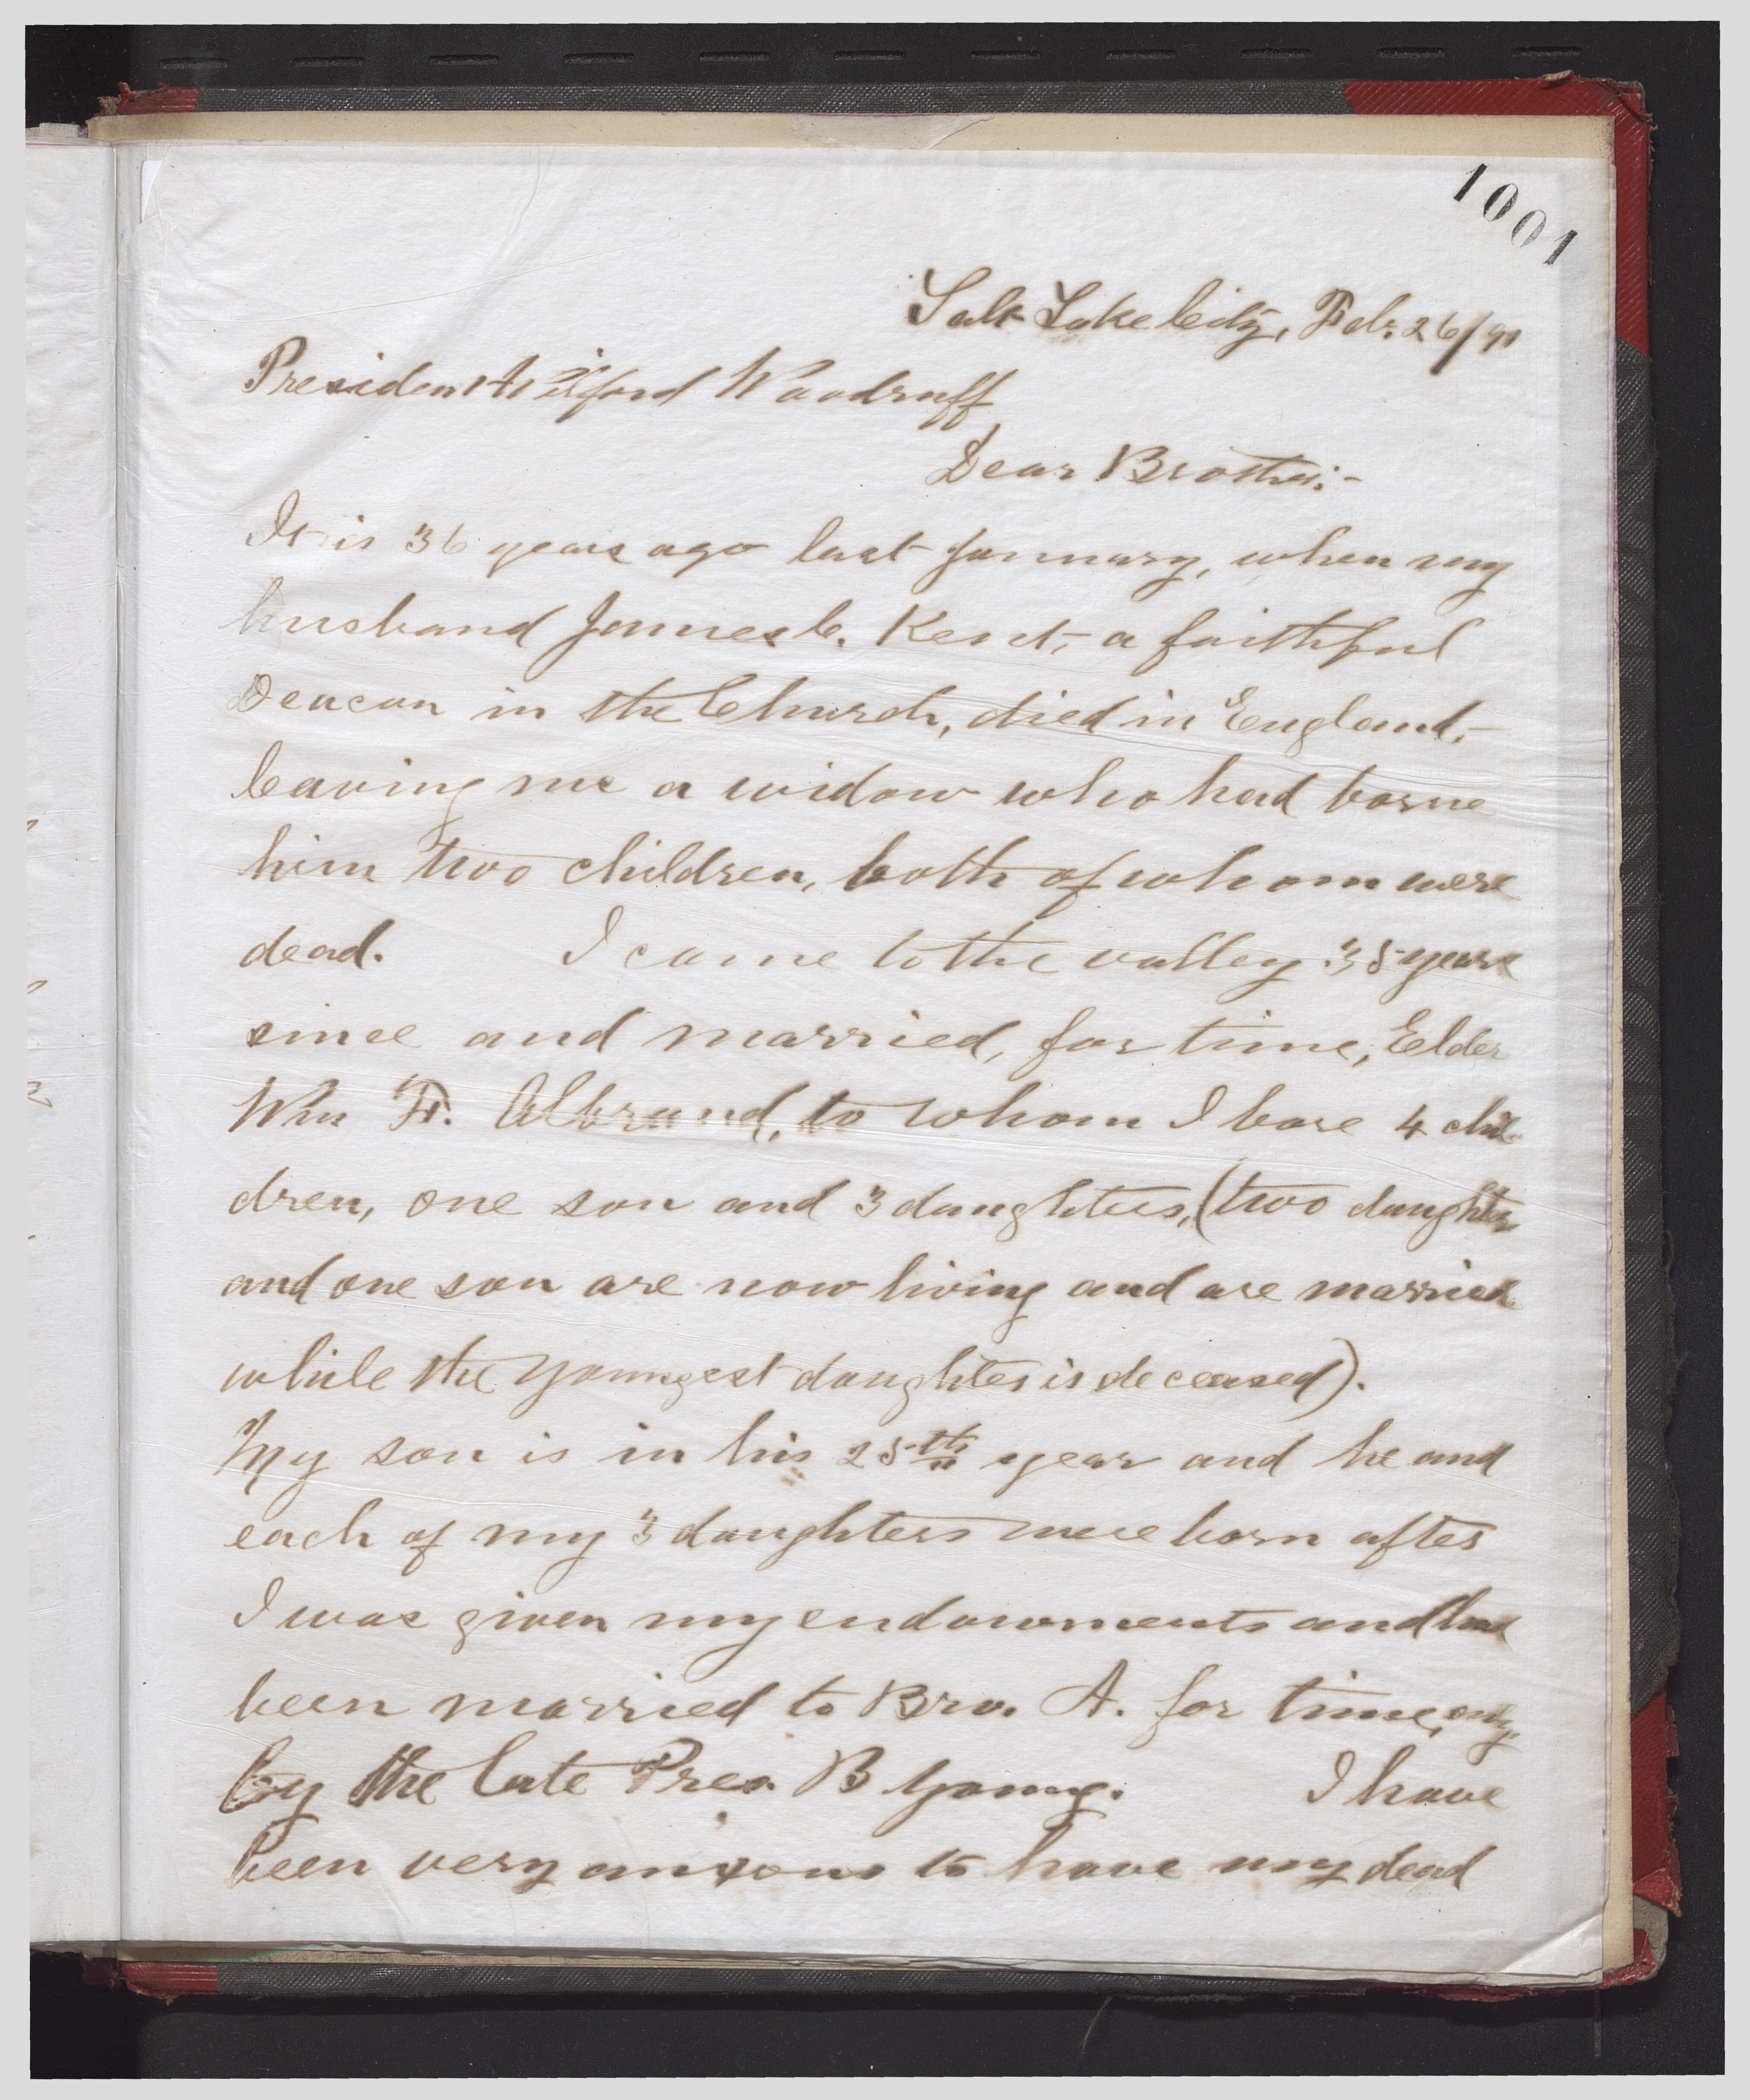 1001
Salt Lake City, Feb. 26/91
President Wilford Woodruff
Dear Brother:-
It is 36 years ago last January, when my
husband James C. Kent, a faithful
Deacon in the Church, died in England,
leaving me a widow who had borne
him two children, both of whom were
dead. I came to the valley 35 years
since and married, for time, Elder
Wm F. Albrand, to whom I bore 4 chil-
dren, one son and 3 daughters, (two daughters
and one son are now living and are married
while the youngest daughter is deceased).
My son is in his 25th year and he and
each of my 3 daughters were born after
I was given my endowments and had
been married to Bro. A. for time, only
by the late Pres. B Young. I have
been very anxous to have my dead